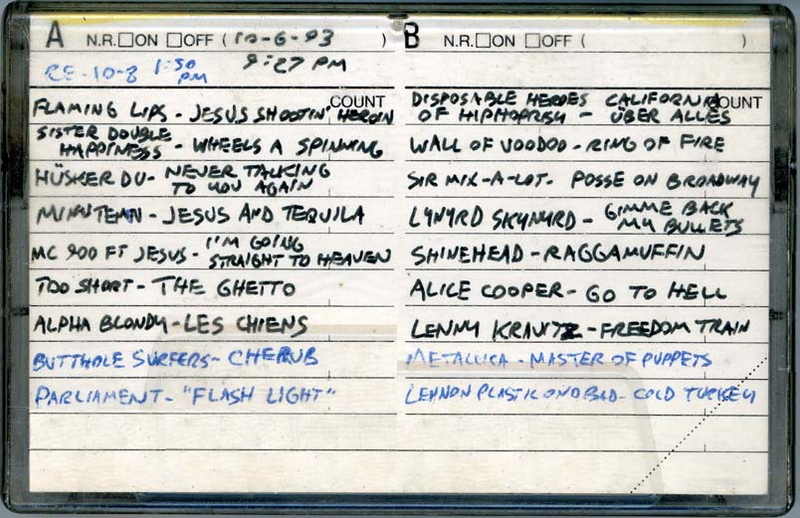 A N.R.☐ON ☐OFF ( 10-6-93 )
9:27 PM
RE-10-8 1:50 PM
COUNT
FLAMING LIPS - JESUS SHOOTIN' HEROIN
SISTER DOUBLE
HAPPINESS - WHEELS A SPINNING
HÜSKER DU - NEVER TALKING
TO YOU AGAIN
MINUTEMN - JESUS AND TEQUILA
MC 900 FT JESUS - I'M GOING
STRAIGHT TO HEAVEN
TOO SHORT - THE GHETTO
ALPHA BLONDY - LES CHIENS
BUTTHOLE SURFERS - CHERUB
PARLIAMENT - "FLASH LIGHT"
B N.R.☐ON ☐OFF ( )
COUNT
DISPOSABLE HEROES CALIFORNIA
OF HIPHOPRISY - ÜBER ALLES
WALL OF VOODOO - RING OF FIRE
SIR MIX-A-LOT - POSSE ON BROADWAY
LYNYRD SKYNYRD - GIMME BACK
MY BULLETS
SHINEHEAD - RAGGAMUFFIN
ALICE COOPER - GO TO HELL
LENNY KRAVITZ - FREEDOM TRAIN
METALLICA - MASTER OF PUPPETS
LENNON PLASTIC ONO BAD - COLD TURKEY